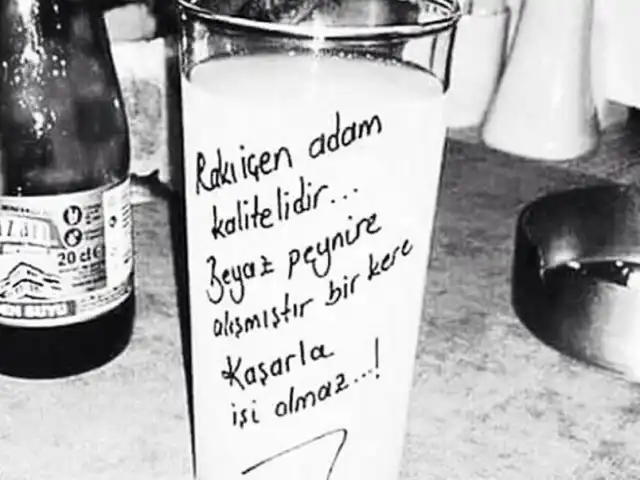 Rakı içen adam
kalitelidir...
Beyaz peynire
alışmıştır bir kere
Kaşarla
işi olmaz...!
20 cl e
SUYU